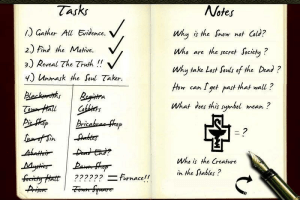 Tasks
1.) Gather All Evidence.
2.) Find the Motive.
3.) Reveal The Truth !!
4.) Unmask the Soul Taker.
Blacksmiths
Town Hall
Pie Shop
Mystics
Society Hall
Prison
Cobblers
Stables
Dead End?
?????? = Furnace!!
Town Square
Notes
Why is the Snow not Cold?
Who are the secret Society ?
Why take Lost Souls of the Dead ?
How can I get past that wall ?
What does this symbol mean ?
= ?
Who is the Creature
in the Stables ?